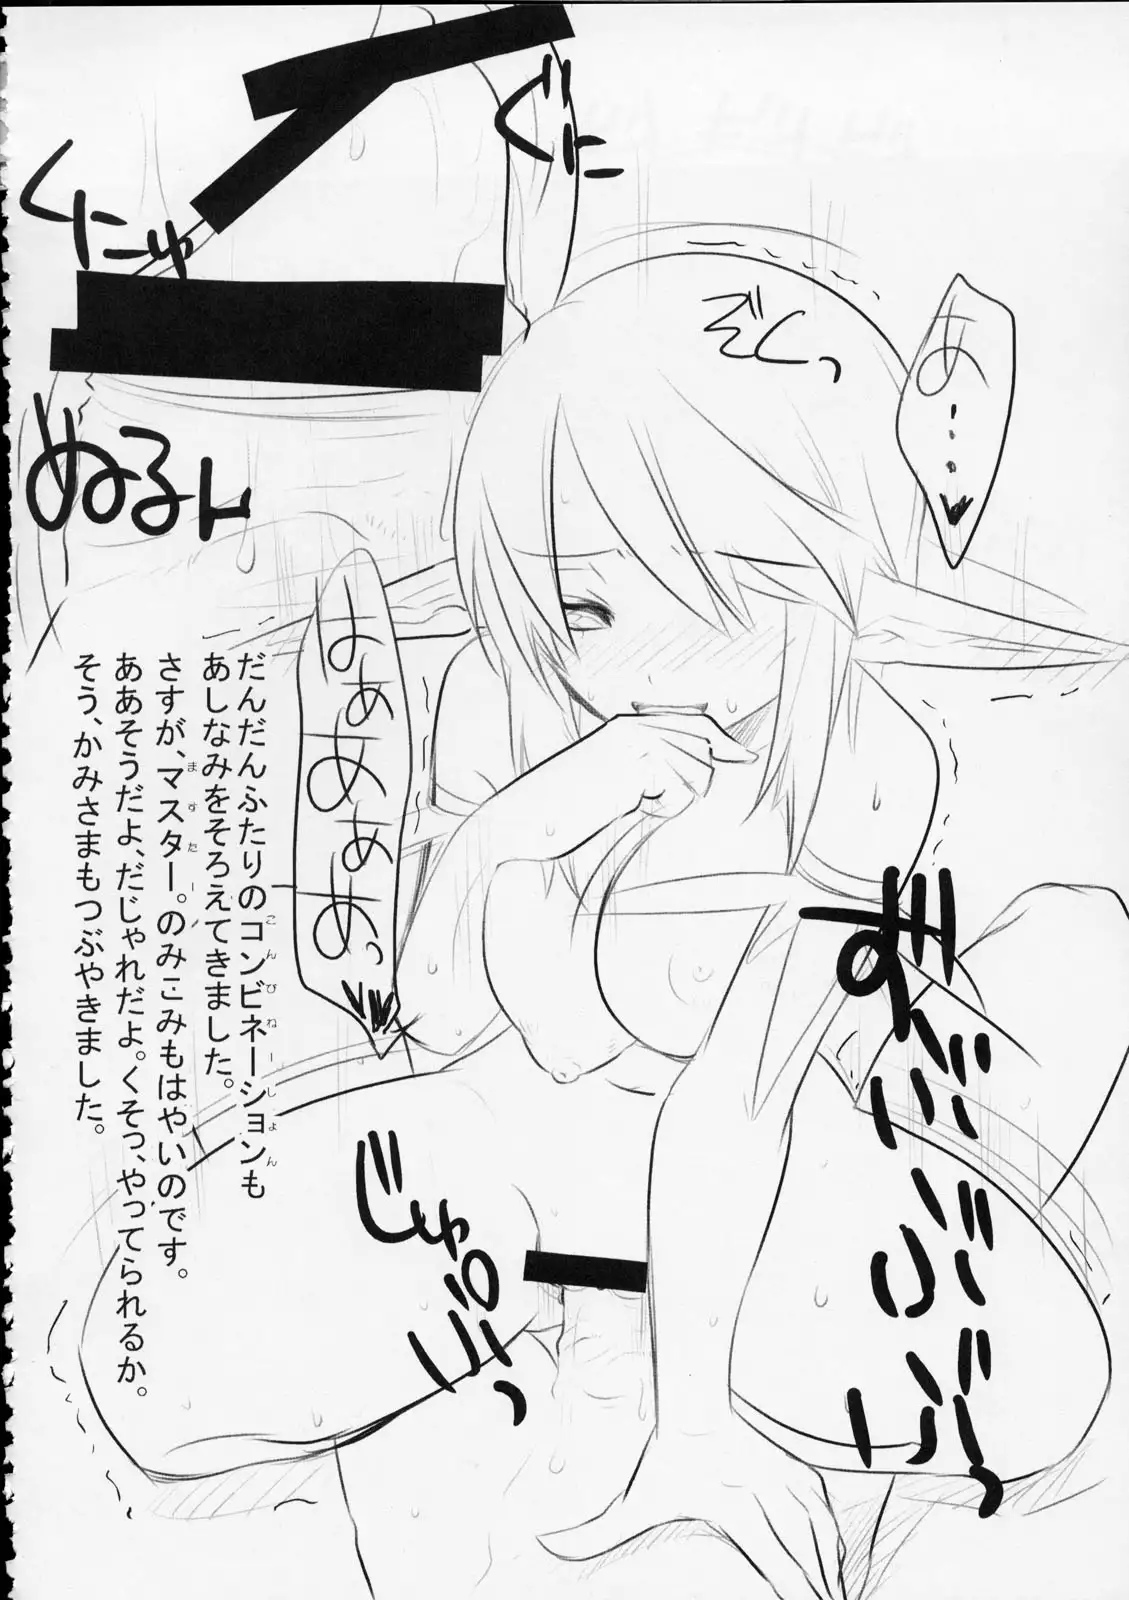 ぐにに
くにゅ
ぬるん
ぞくっ
あ……
はぁああぁあっ
だんだんふたりのコンビネーションも
あしなみをそろえてきました。
さすが、マスター。のみこみもはやいのです。
ああそうだよ、だじゃれだよ。くそっ、やってられるか。
そう、かみさまもつぶやきました。
じゅぷっ